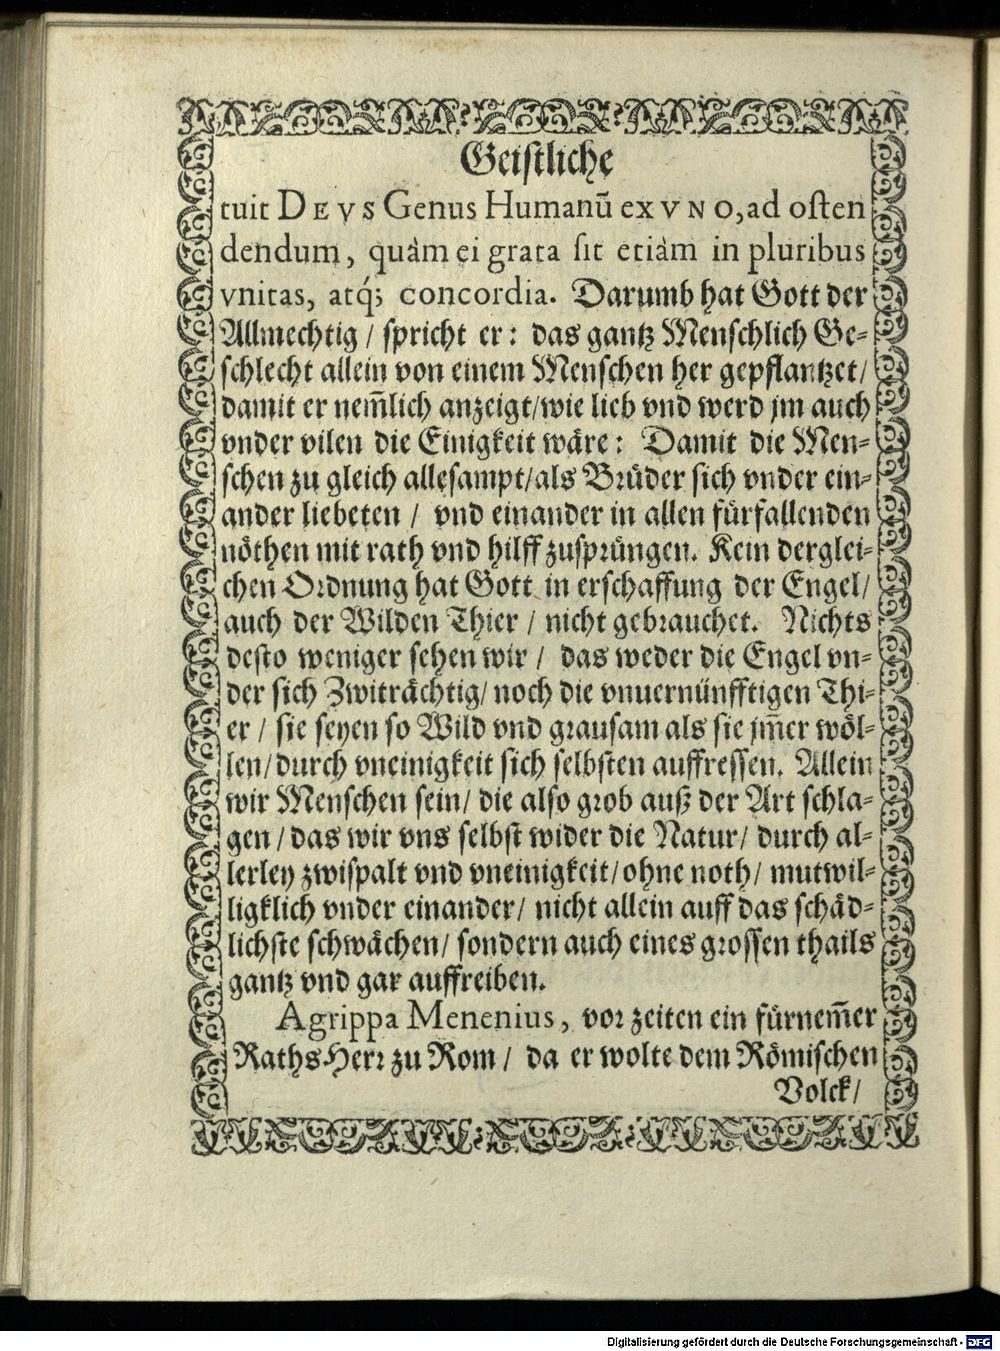 Geistliche
tuit DEVS Genus Humanū ex VNO, ad osten
dendum, quàm ei grata sit etiàm in pluribus
vnitas, atq́; concordia. Darumb hat Gott der
Allmechtig / spricht er: das gantz Menschlich Ge-
schlecht allein von einem Menschen her gepflantzet/
damit er nem̄lich anzeigt/wie lieb vnd werd jm auch
vnder vilen die Einigkeit wäre: Damit die Men-
schen zu gleich allesampt/als Brüder sich vnder ein-
ander liebeten / vnd einander in allen fürfallenden
nöthen mit rath vnd hilff zusprüngen. Kein derglei-
chen Ordnung hat Gott in erschaffung der Engel/
auch der Wilden Thier / nicht gebrauchet. Nichts
desto weniger sehen wir / das weder die Engel vn-
der sich Zwiträchtig/ noch die vnuernünfftigen Thi-
er / sie seyen so Wild vnd grausam als sie jm̄er wöl-
len/durch vneinigkeit sich selbsten auffressen. Allein
wir Menschen sein/ die also grob auß der Art schla-
gen / das wir vns selbst wider die Natur/ durch al-
lerley zwispalt vnd vneinigkeit/ohne noth/ mutwil-
ligklich vnder einander/ nicht allein auff das schäd-
lichste schwächen/ sondern auch eines grossen thails
gantz vnd gar auffreiben.
Agrippa Menenius, vor zeiten ein fürnem̄er
RathsHerr zu Rom / da er wolte dem Römischen
Volck/
Digitalisierung gefördert durch die Deutsche Forschungsgemeinschaft - DFG